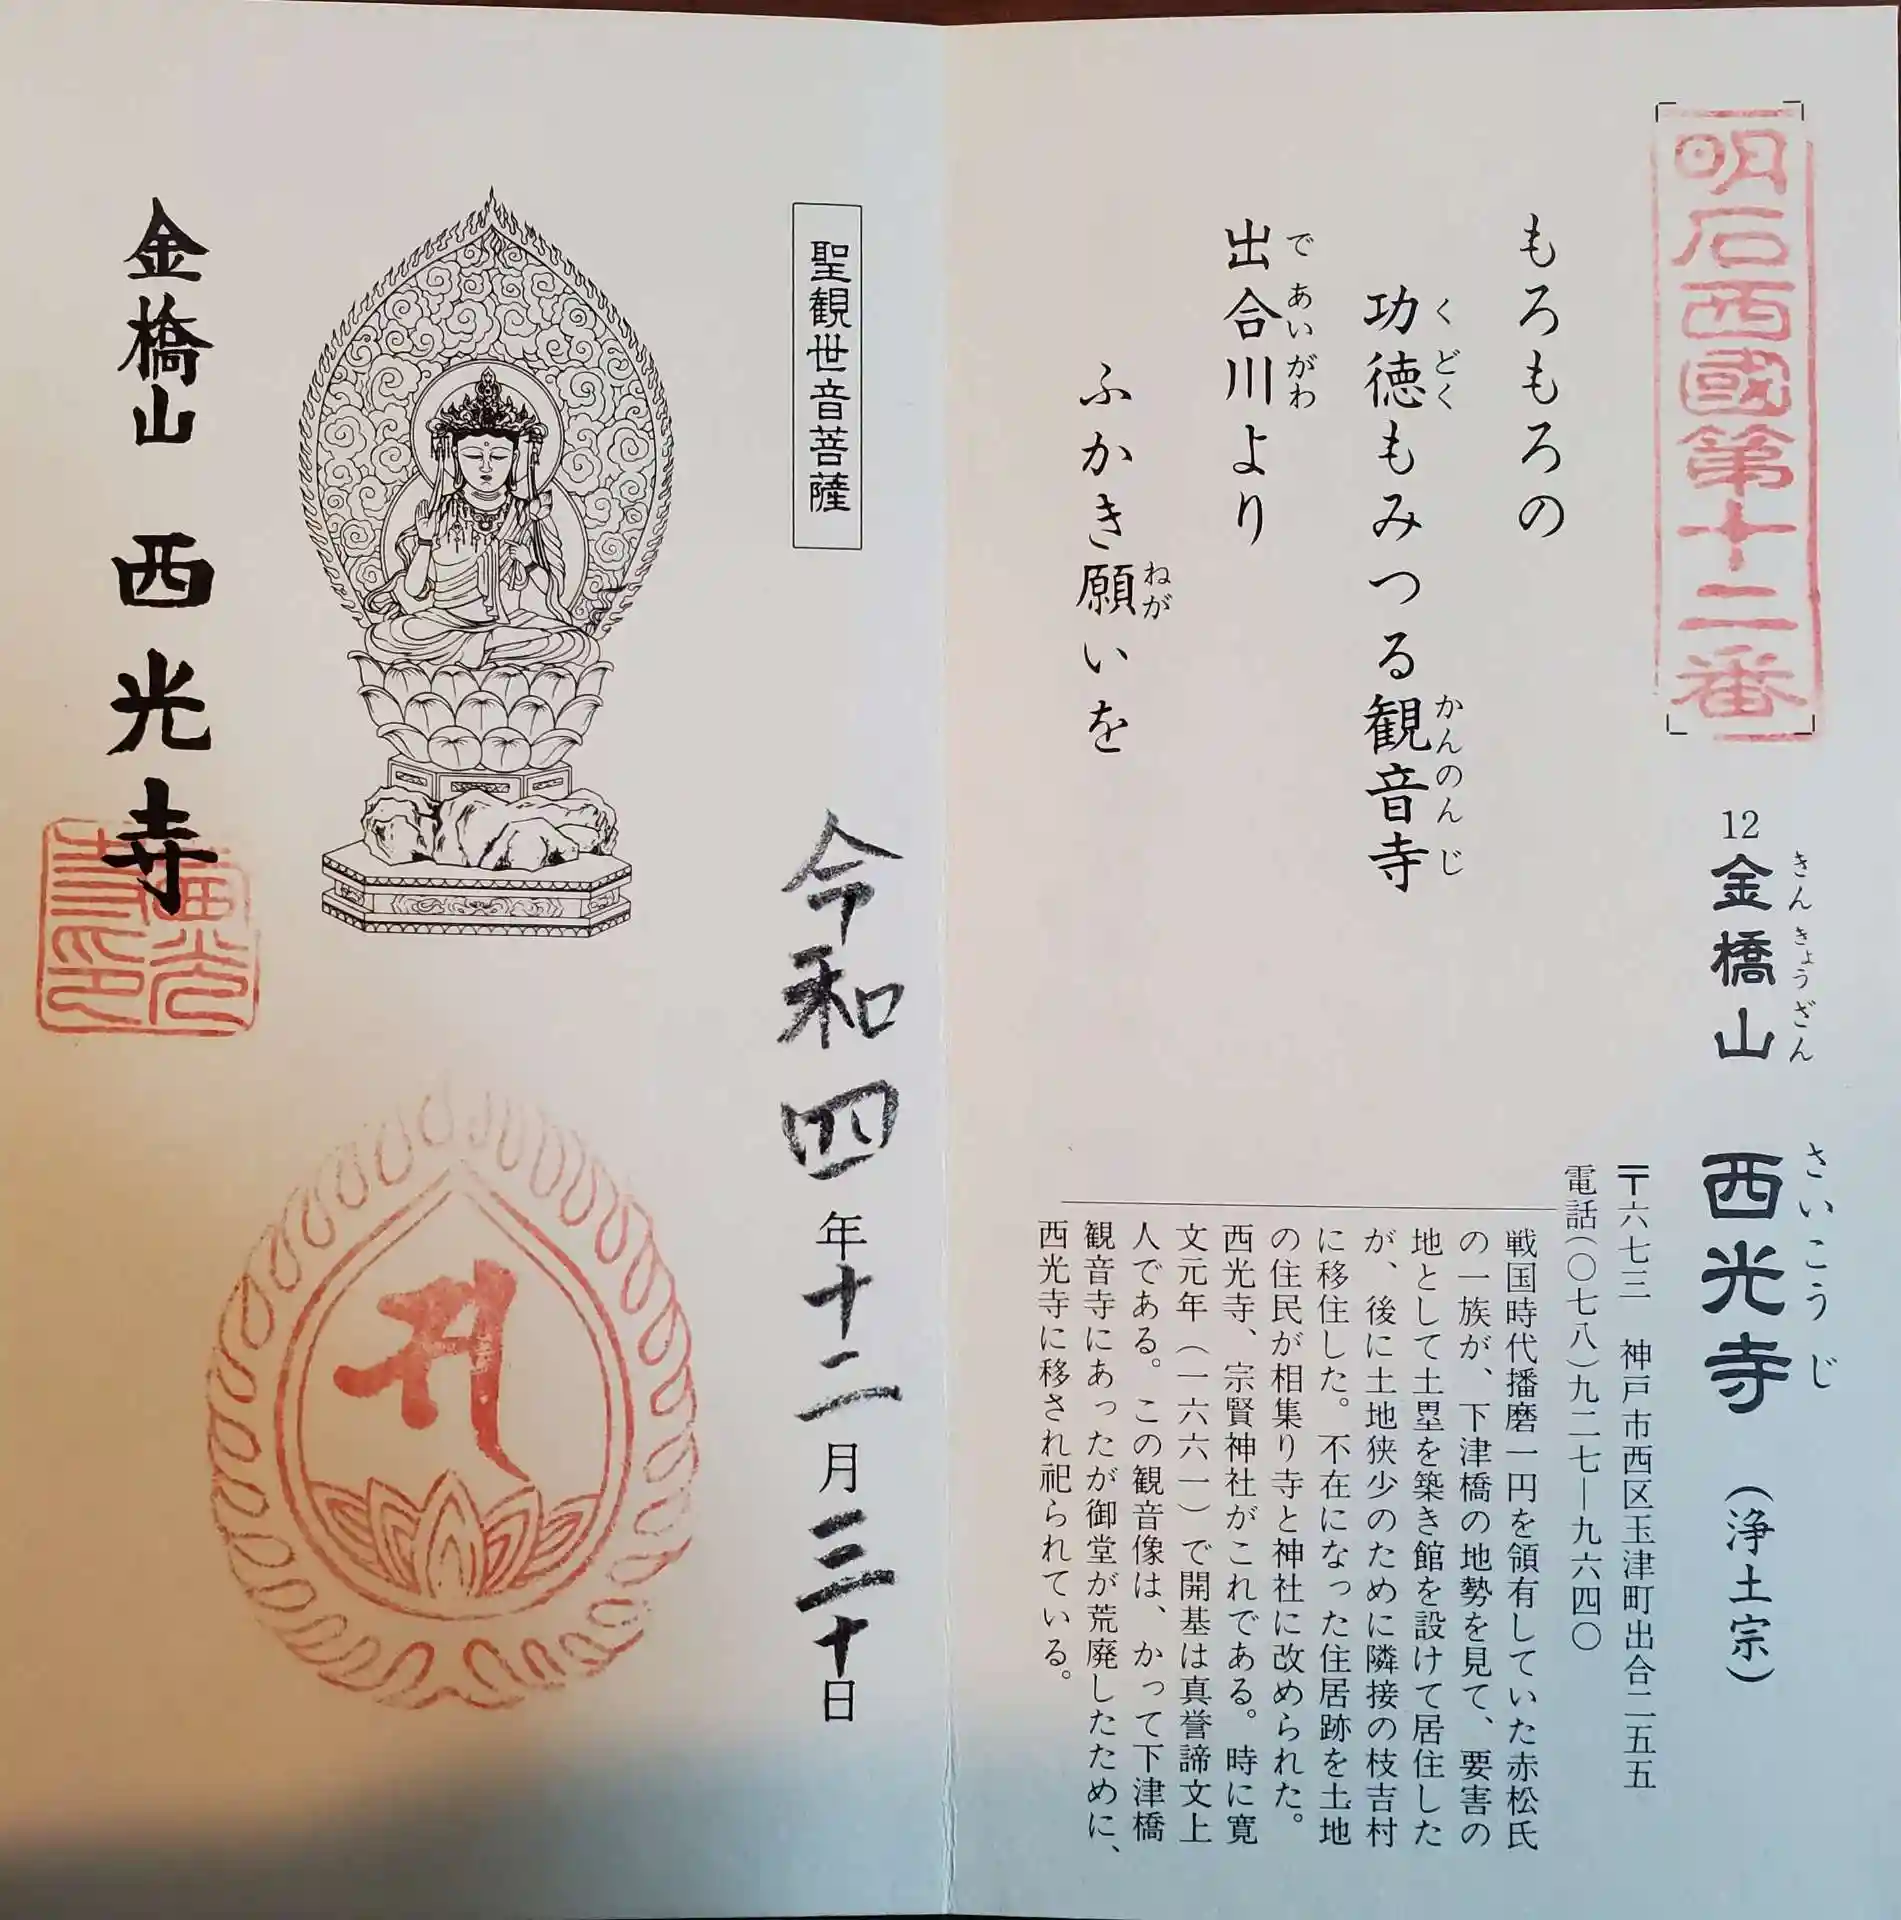 明石西國第十二番
12 金橋山 西光寺 (浄土宗)
きんきょうざん さいこうじ
〒六七三 神戸市西区玉津町出合二五五
電話(〇七八)九二七―九六四〇
もろもろの
功徳もみつる観音寺
くどく かんのんじ
出合川より
であいがわ
ふかき願いを
ねが
戦国時代播磨一円を領有していた赤松氏
の一族が、下津橋の地勢を見て、要害の
地として土塁を築き館を設けて居住した
が、後に土地狭少のために隣接の枝吉村
に移住した。不在になった住居跡を土地
の住民が相集り寺と神社に改められた。
西光寺、宗賢神社がこれである。時に寛
文元年(一六六一)で開基は真誉諦文上
人である。この観音像は、かって下津橋
観音寺にあったが御堂が荒廃したために、
西光寺に移され祀られている。
聖観世音菩薩
令和四年十二月三十日
金橋山 西光寺
西光寺印